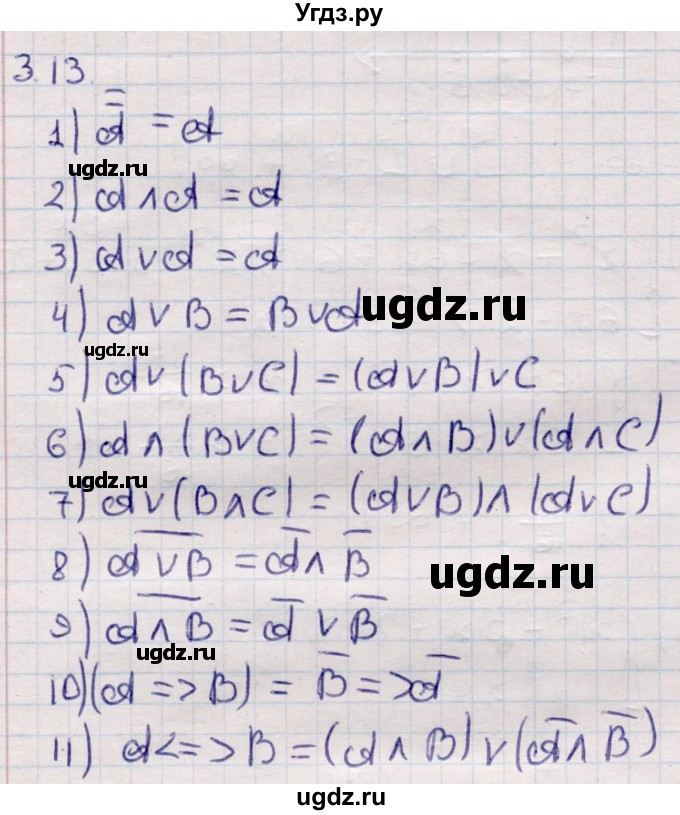 Угдз.ру
3.13.
1) A̿ = A
ugdz.ru
2) A ∧ A = A
3) A ∨ A = A
4) A ∨ B = B ∨ A
ugdz.ru
ugdz.ru
5) A ∨ (B ∨ C) = (A ∨ B) ∨ C
6) A ∧ (B ∨ C) = (A ∧ B) ∨ (A ∧ C)
ugdz.ru
7) A ∨ (B ∧ C) = (A ∨ B) ∧ (A ∨ C)
8) A̅ ̅∨̅ ̅B̅ = A̅ ∧ B̅
ugdz.ru
9) A̅ ̅∧̅ ̅B̅ = A̅ ∨ B̅
ugdz.ru
10) (A => B) = B̅ => A̅
11) A <=> B = (A ∧ B) ∨ (A̅ ∧ B̅)
ugdz.ru